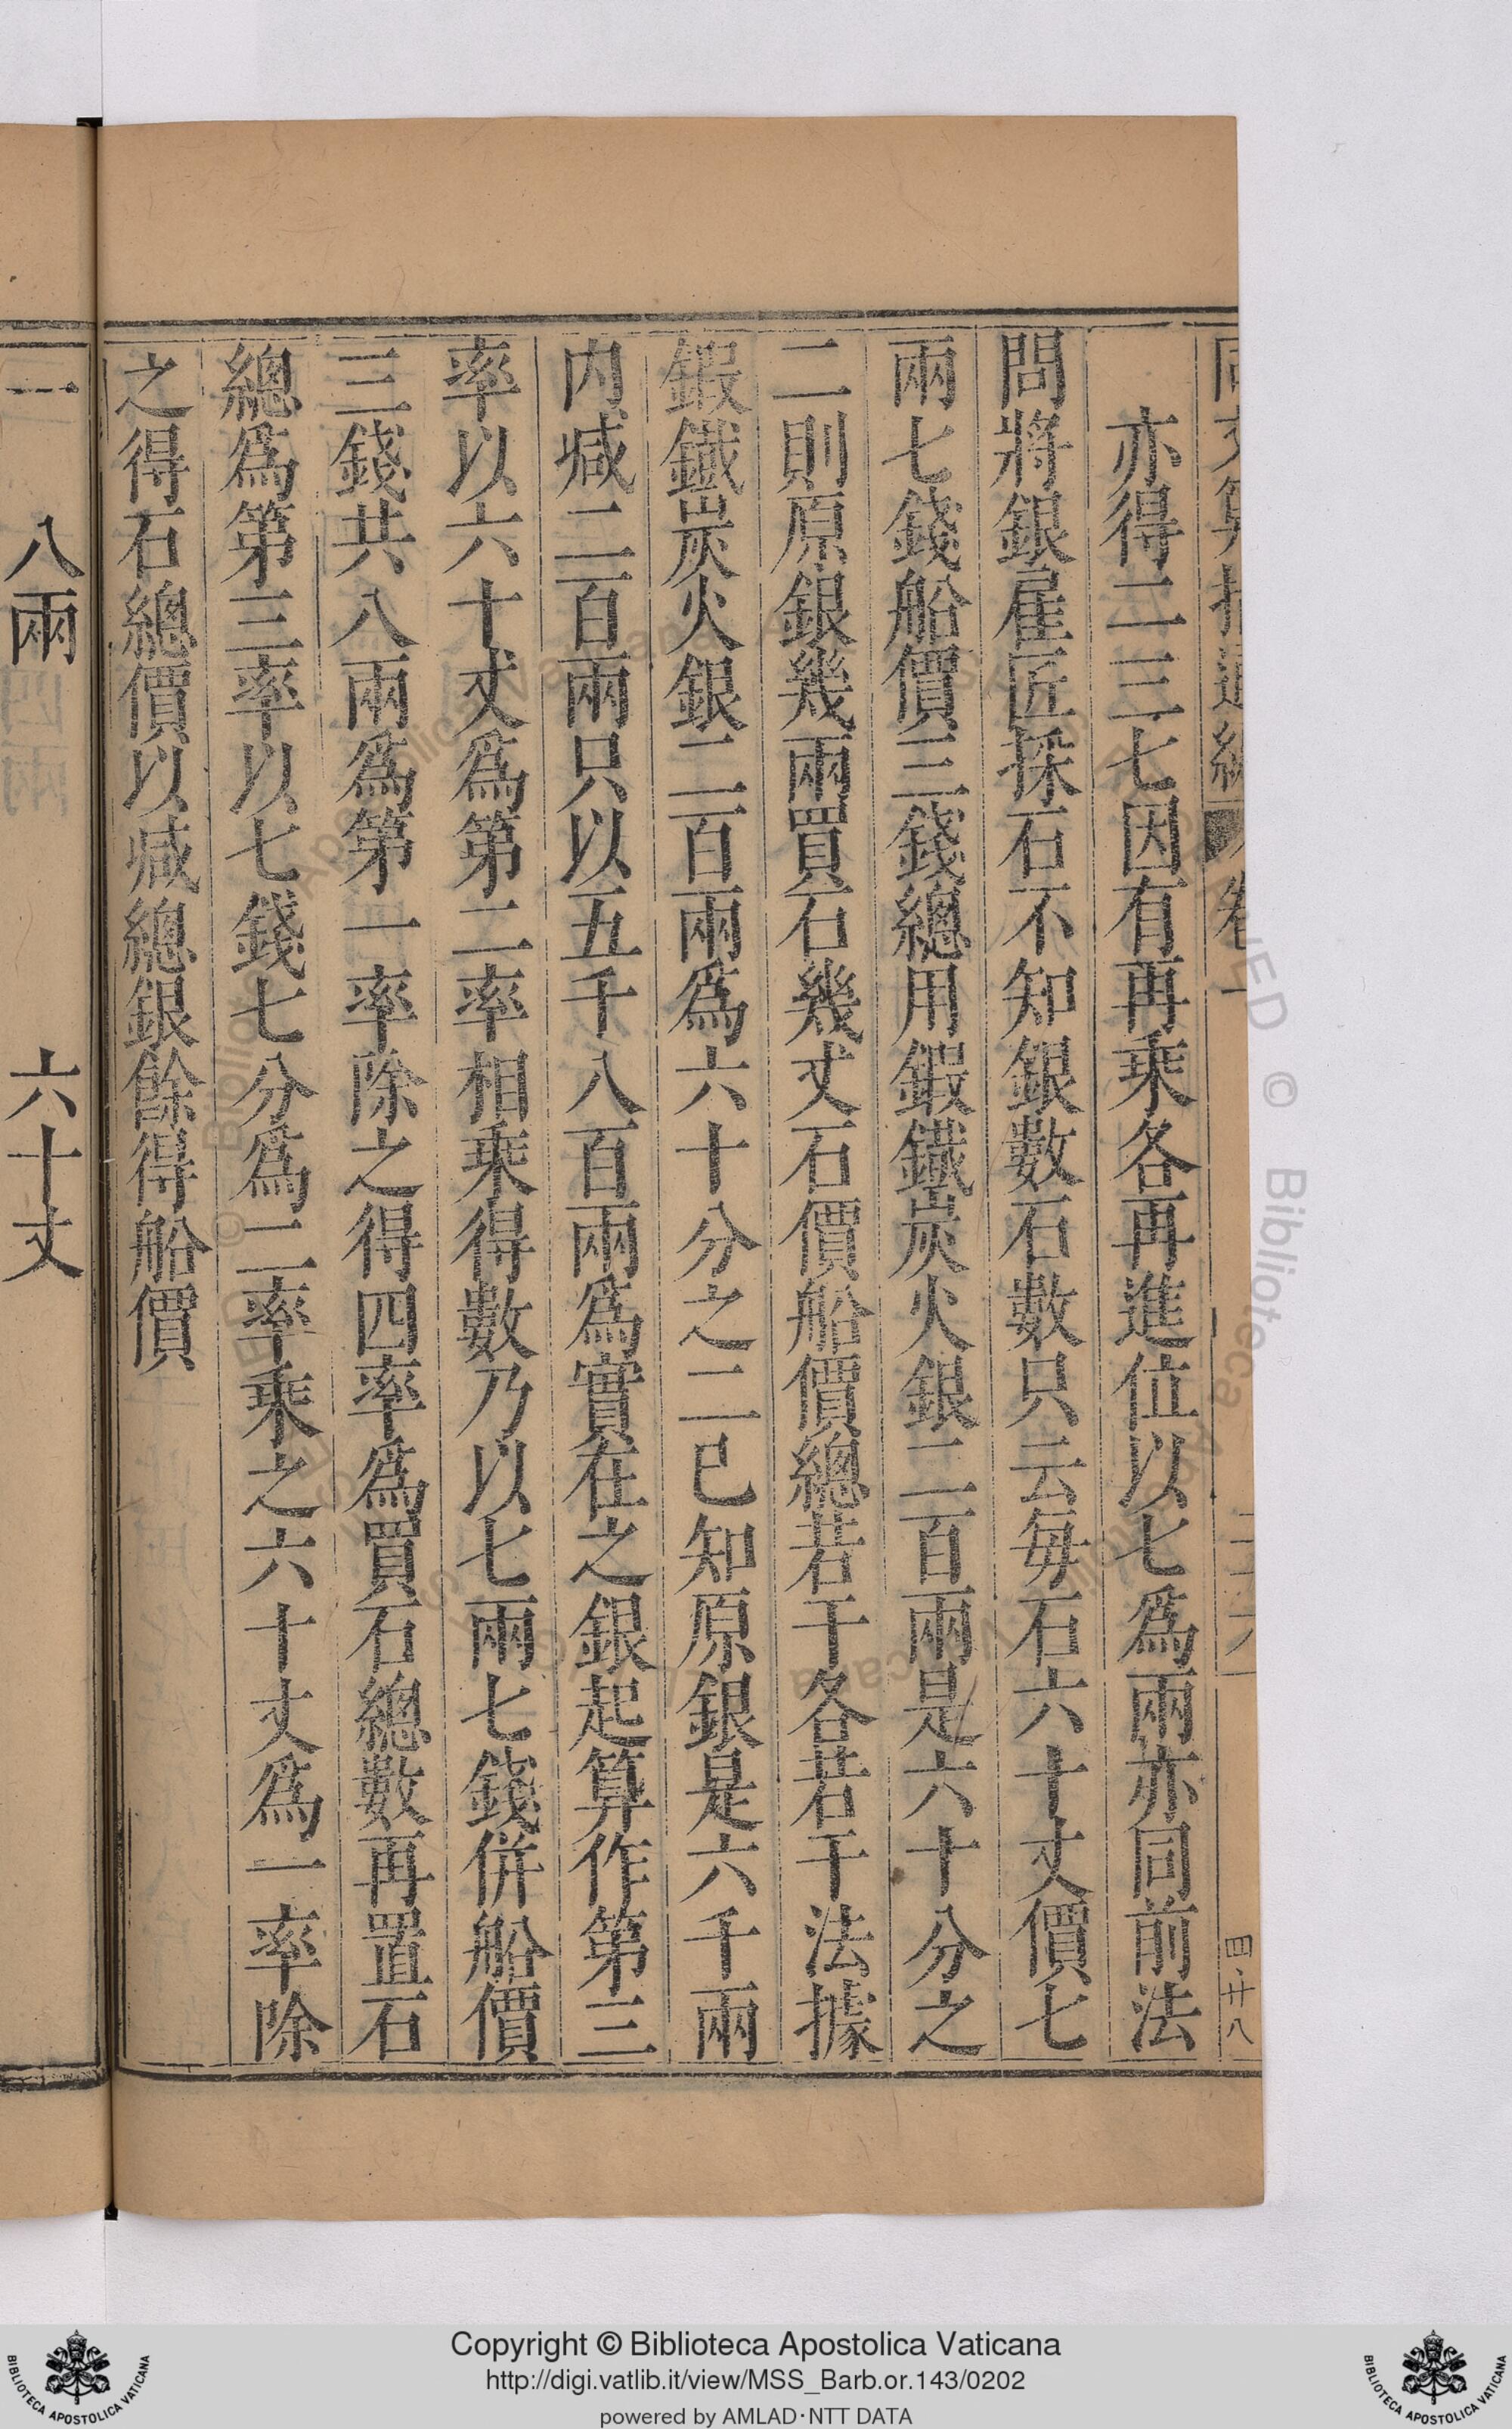 亦得二三七因有再乘各再進位以七爲兩亦同前法
問將銀雇匠採石不知銀數石數只云每石六十丈價七
兩七錢船價三錢總用鍜鐵炭火銀二百兩是六十分之
二則原銀幾兩買石幾丈石價船價總若干各若干法據
鍜鐵炭火銀二百兩爲六十分之二已知原銀是六千兩
内减二百兩只以五千八百兩爲實在之銀起算作第三
率以六十丈爲第二率相乘得數乃以七兩七錢併船價
三錢共八兩爲第一率除之得四率爲買石總數再置石
總爲第三率以七錢七分爲二率乘之六十丈爲一率除
之得石總價以减總銀餘得船價
四十八
一 八兩 六十丈
Copyright © Biblioteca Apostolica Vaticana
http://digi.vatlib.it/view/MSS_Barb.or.143/0202
powered by AMLAD·NTT DATA
BIBLIOTECA APOSTOLICA VATICANA
BIBLIOTECA APOSTOLICA VATICANA